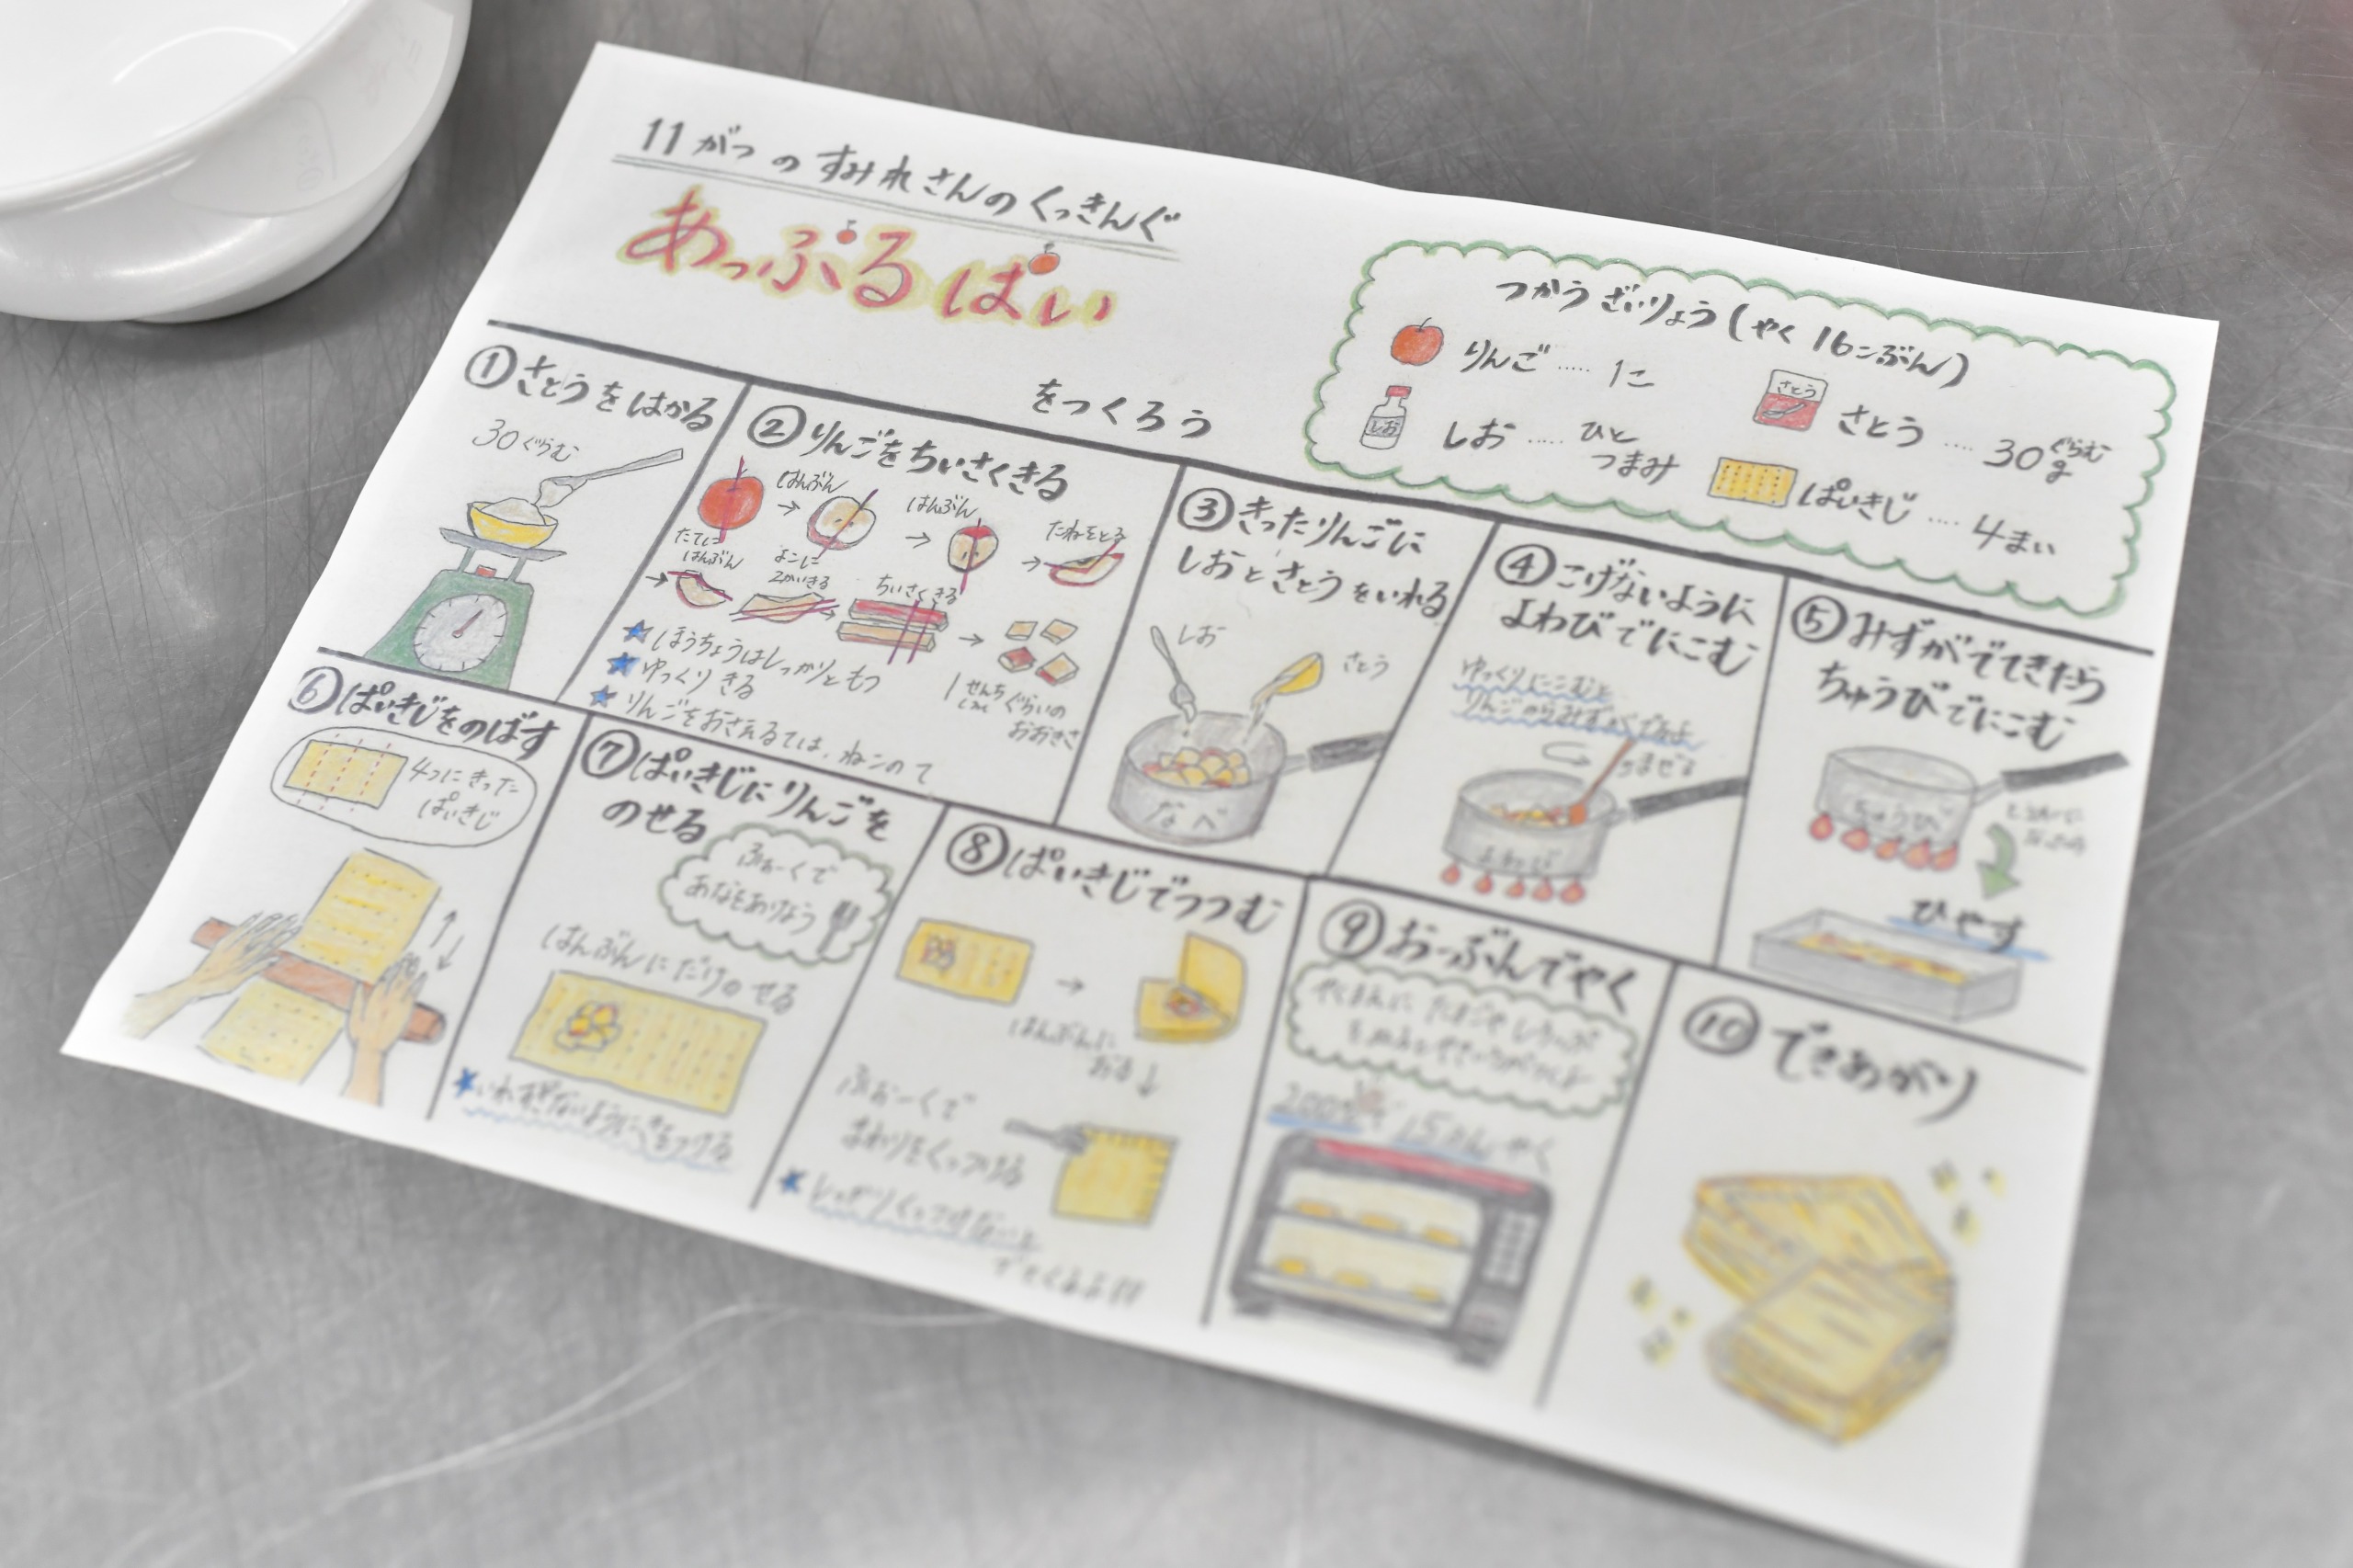 11がつのすみれさんのくっきんぐ
あっぷるぱい
をつくろう
つかうざいりょう(やく16こぶん)
りんご ..... 1こ
さとう
さとう .... 30ぐらむ
g
しお
しお ..... ひと
つまみ
ぱいきじ .... 4まい
①さとうをはかる
30ぐらむ
②りんごをちいさくきる
はんぶん
はんぶん
たねをとる
たてに
はんぶん
よこに
2かいきる
ちいさくきる
★ほうちょうはしっかりともつ
★ゆっくりきる
★りんごをおさえるては、ねこのて
1せんちぐらいの
おおきさ
③きったりんごに
しおとさとうをいれる
しお
さとう
なべ
④こげないように
よわびでにこむ
ゆっくりにこむと
まぜる
よわび
⑤みずがでてきたら
ちゅうびでにこむ
ちゅうび
ひやす
⑥ぱいきじをのばす
4つにきった
ぱいきじ
⑦ぱいきじにりんごを
のせる
ふぉーくで
あなをあけよう
はんぶんにだけのせる
★いれすぎないようにきをつける
⑧ぱいきじでつつむ
はんぶんに
おる
ふぉーくで
まわりをくっつける
★しっかりくっつけないと
でてくるよ!!
⑨おーぶんでやく
15ふんやく
⑩できあがり